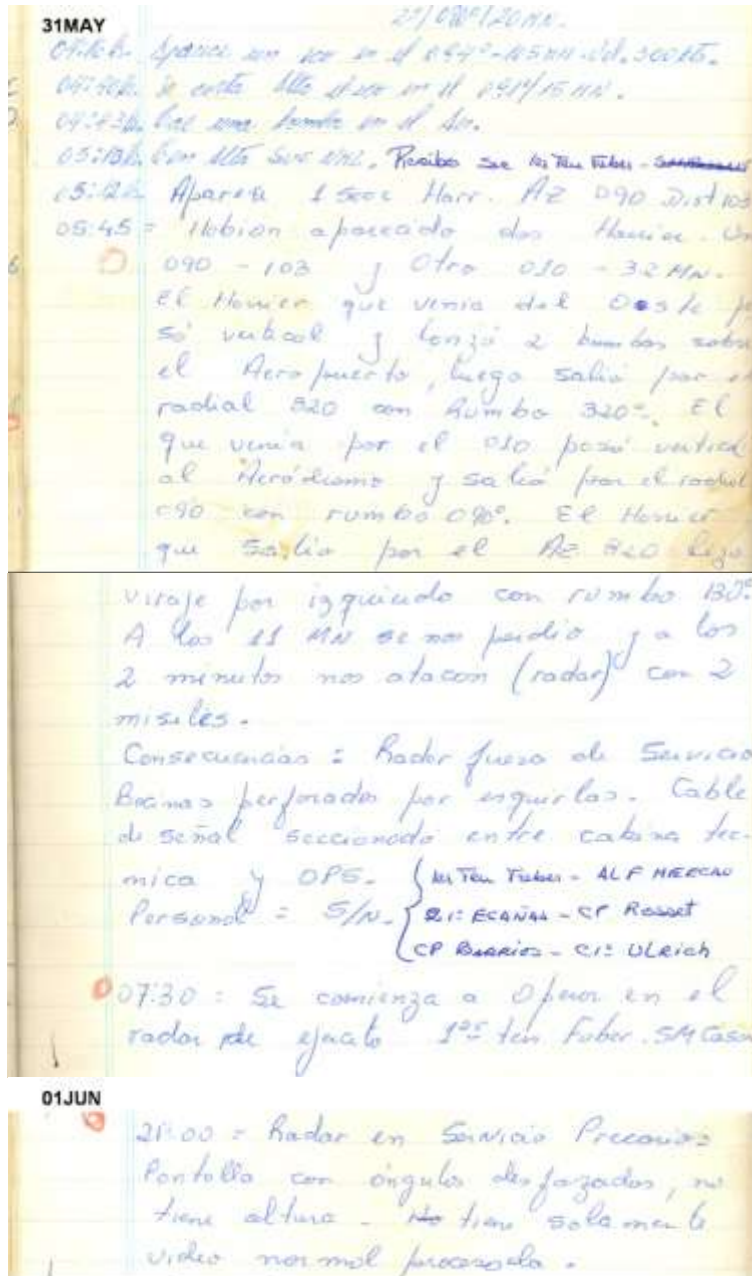 31MAY
2º/090º/20MN.
04:10h. Aparece un eco en el 094º-105MN-Vel. 300kts.
04:40h. Se corta el eco en el 091º/15MN.
04:43h. Cae una bomba en el
05:13h. Recibo Ser 1er Ten Fuber -
05:12h Aparece 1 Seco Harr. AZ 090 Dist 103
05:45 = Habian aparecido dos Harrier. Un
090 - 103 y Otro 010 - 32 MN.
El Harrier que venia del Oeste pa
só vertical y lanzó 2 bombas sobre
el Aeropuerto, luego salió por el
radial 320 con Rumbo 320º. El
que venia por el 010 pasó vertical
al Aeródromo y salió por el radial
090 con rumbo 090º. El Harrier
que Salio por el AZ 320 hizo
viraje por izquierda con rumbo 130º
A las 11 MN se nos perdio y a los
2 minutos nos atacan (radar) con 2
misiles.
Consecuencias : Radar fuera de Servicio
Bocinas perforadas por esquirlas. Cable
de señal seccionado entre cabina tec-
nica y OPS. 1er Ten Fuber - ALF MERCAU
Personal = S/N. ECAÑAS - CP Rosset
CP BARRIOS - C1º ULRich
07:30 : Se comienza a Operar en el
radar de ejercito 1er ten Fuber. SM Cason
01JUN
21:00 = Radar en Servicio Precario =
Pantalla con ángulos desfazados, no
tiene altura - No tiene solamente
video normal procesado.